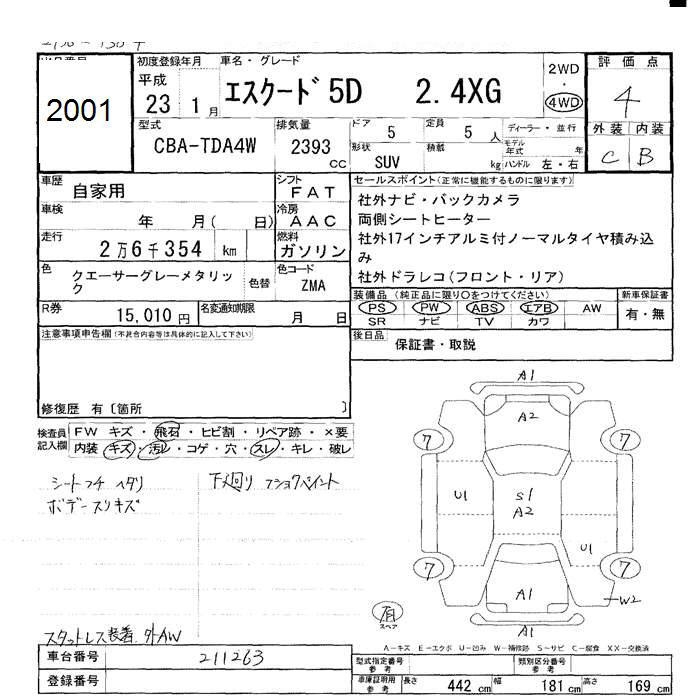 2001
初度登録年月
平成
23 1月
車名・グレード
エスクード 5D 2.4XG
2WD
・
4WD
評価点
4
外装 内装
C B
型式
CBA-TDA4W
排気量
2393 CC
ドア 5
定員 5 人
形状 SUV
積載 kg
ディーラー・並行
モデル年式 年
ハンドル 左・右
車歴
自家用
シフト
FAT
車検
年 月( 日)
冷房
AAC
走行
2万6千354 km
燃料
ガソリン
色
クエーサーグレーメタリック
色替
色コード
ZMA
R券
15,010 円
名変通知期限
月 日
セールスポイント(正常に機能するものに限ります)
社外ナビ・バックカメラ
両側シートヒーター
社外17インチアルミ付ノーマルタイヤ積み込
み
社外ドラレコ(フロント・リア)
装備品 (純正品に限り○をつけてください)
PS PW ABS エアB AW
SR ナビ TV カワ
新車保証書
有・無
後日品
保証書・取説
注意事項申告欄(不具合内容等は具体的に記入して下さい)
修復歴 有〔箇所 〕
検査員
記入欄
FW キズ・飛石・ヒビ割・リペア跡・×要
内装 キズ・汚レ・コゲ・穴・スレ・キレ・破レ
シートフチ ヘタリ
ボデースリキズ
下廻り
スタットレス装着 外AW
A1
A2
7
7
U1
S1
A2
U1
7
7
A1
W2
A1
有
スペア
A-キズ E-エクボ U-凹み W-補修跡 S-サビ C-腐食 XX-交換済
車台番号
211263
登録番号
型式指定番号
参考
類別区分番号
参考
車庫証明用
参考
長さ 442 cm 幅 181 cm 高さ 169 cm